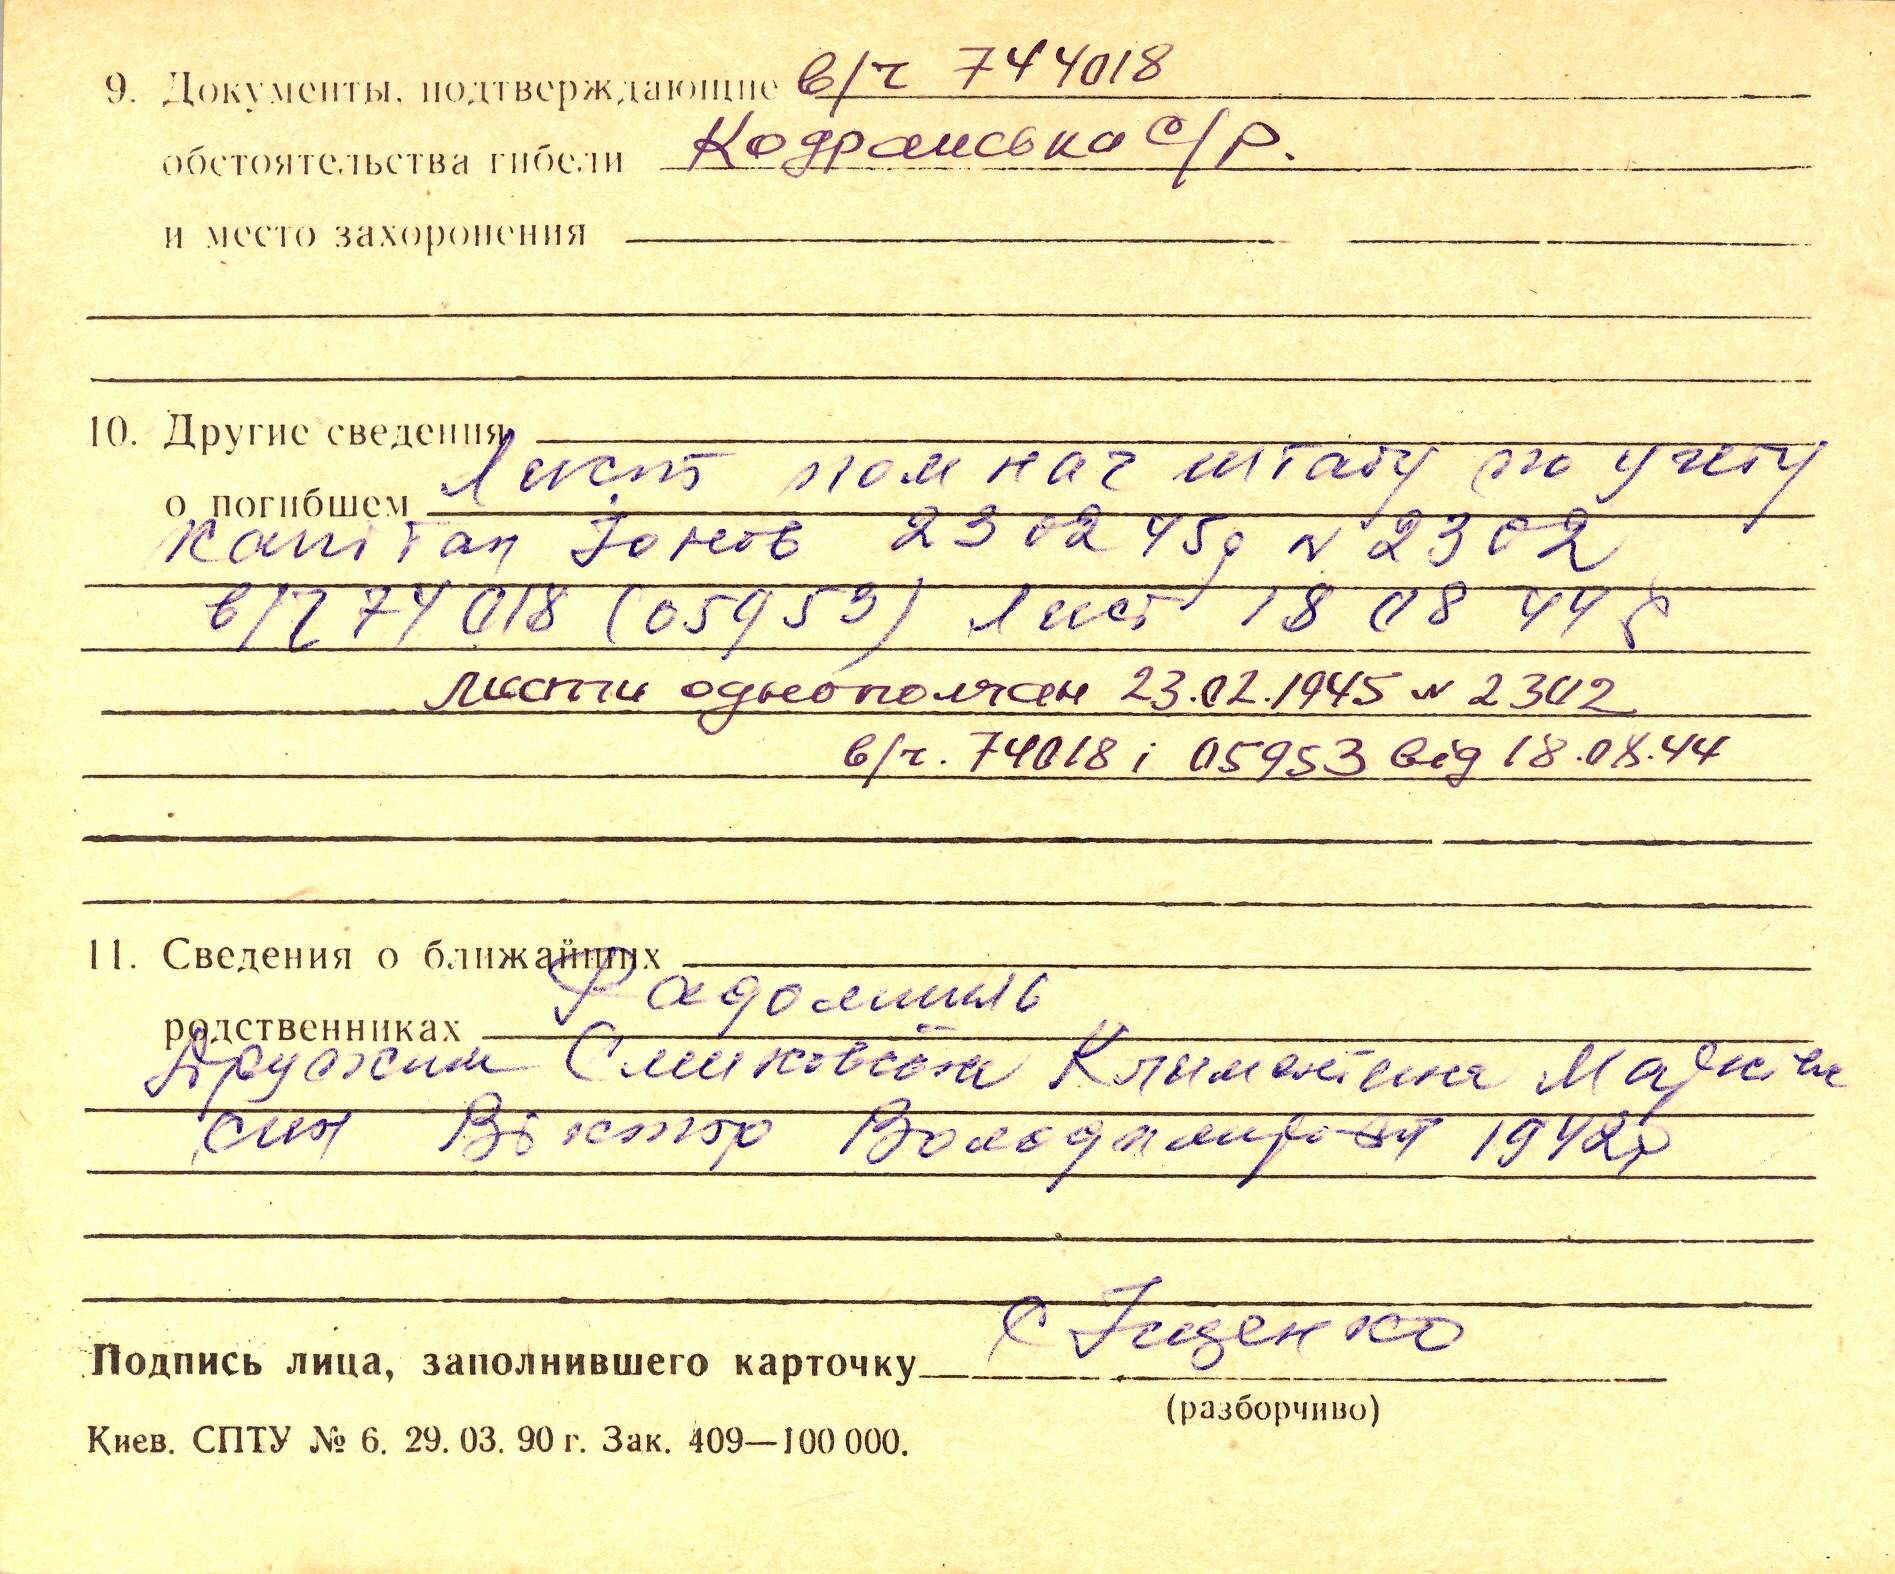 9. Документы, подтверждающие в/ч 744018
обстоятельства гибели Кодранська с/р.
и место захоронения
10. Другие сведения
о погибшем Лист пом нач штабу по учету
капітан Іонов 23 02 45р № 2302
в/ч 74018 (05953) Лист 18 08 44р
листи однополчан 23.02.1945 № 2302
в/ч. 74018 і 05953 від 18.08.44
11. Сведения о ближайших
родственниках Радомишль
Дружина Климентина
син Віктор 1942р
Подпись лица, заполнившего карточку С Іщенко
(разборчиво)
Киев. СПТУ № 6. 29. 03. 90 г. Зак. 409—100 000.